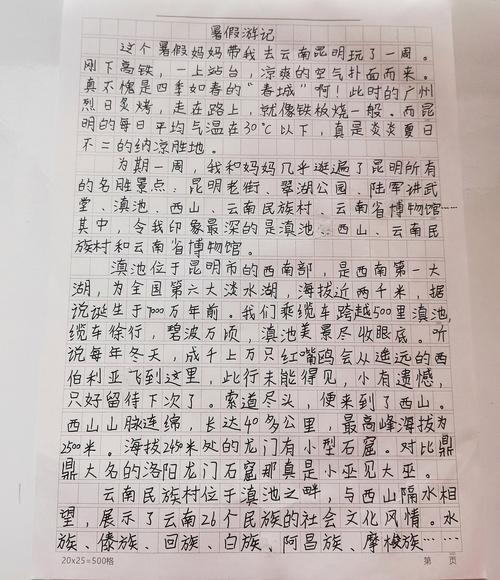 暑假游记
这个暑假妈妈带我去云南昆明玩了一周。
刚下高铁，一上站台，凉爽的空气扑面而来。
真不愧是四季如春的“春城”啊！此时的广州
烈日炙烤，走在路上，就像铁板烧一般。而昆
明的每日平均气温在30℃以下，真是炎炎夏日
不二的纳凉胜地。
为期一周，我和妈妈几乎逛遍了昆明所有
的名胜景点：昆明老街、翠湖公园、陆军讲武
堂、滇池、西山、云南民族村、云南省博物馆……
其中，令我印象最深的是滇池、西山、云南民
族村和云南省博物馆。
滇池位于昆明市的西南部，是西南第一大
湖，为全国第六大淡水湖，海拔近两千米，据
说诞生于7000万年前。我们乘缆车跨越500里滇池，
缆车徐行，碧波万顷，滇池美景尽收眼底。听
说每年冬天，成千上万只红嘴鸥会从遥远的西
伯利亚飞到这里，此行未能得见，小有遗憾，
只好留待下次了。索道尽头，便来到了西山。
西山山脉连绵，长达40多公里，最高峰海拔为
2500米。海拔2450米处的龙门有小型石窟。对比鼎
鼎大名的洛阳龙门石窟那真是小巫见大巫。
云南民族村位于滇池之畔，与西山隔水相
望，展示了云南26个民族的社会文化风情。水
族、傣族、回族、白族、阿昌族、摩梭族……
20x25=500格 第 页